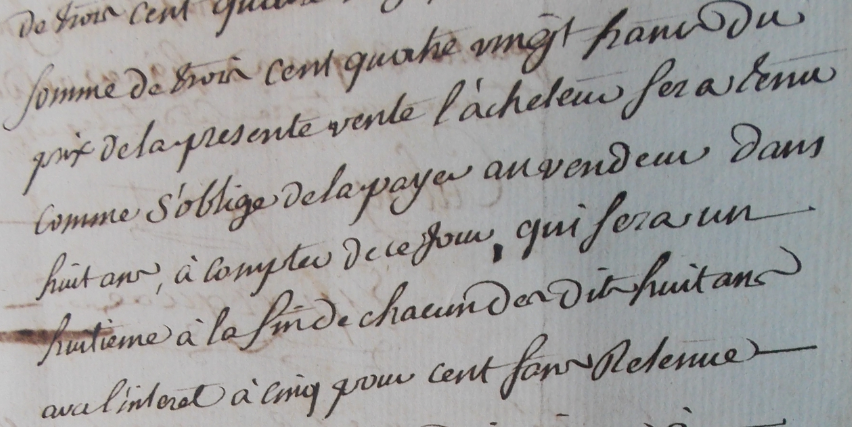 de trois cent quatre
somme de trois cent quatre vingt francs du
prix de la presente vente l'àcheteur sera tenu
comme s'oblige de la payer au vendeur dans
huit ans, à compter de ce jour, qui sera un
huitieme à la fin de chacun des dits huit ans
avec l'interet à cinq pour cent sans Retenue